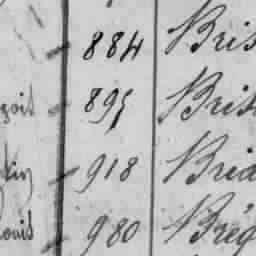 884 Bris
çois 895 Bris
kin 918 Brid
Louis 980 Brég